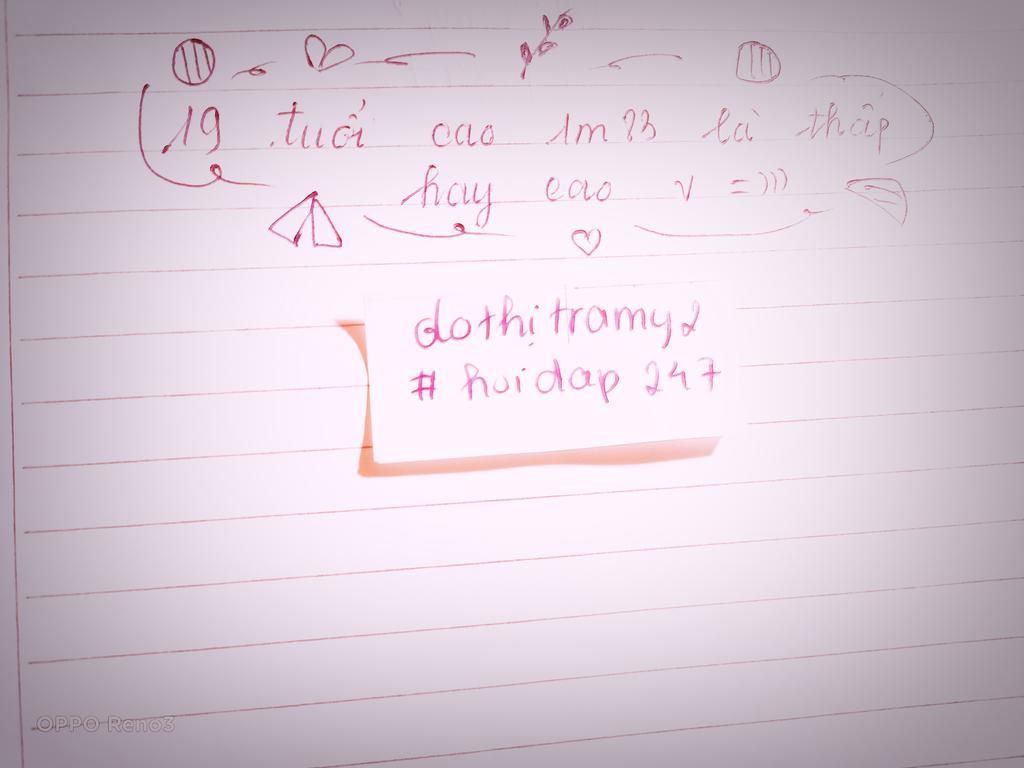 19 tuổi cao 1m73 là thấp
hay cao v =)))
dothịtramy2
# hoidap 247
OPPO Reno3